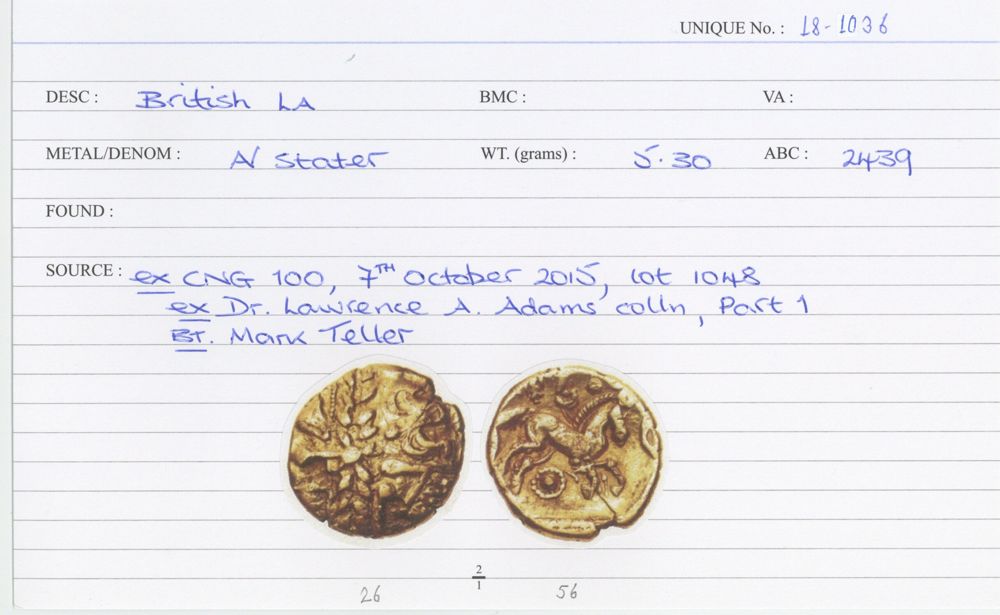 UNIQUE No. : 18-1036
DESC : British LA BMC : VA :
METAL/DENOM : A/ Stater WT. (grams) : 5.30 ABC : 2439
FOUND :
SOURCE : ex CNG 100, 7TH October 2015, lot 1048
ex Dr. Lawrence A. Adams colln, Part 1
BT. Mark Teller
2/1
26 56